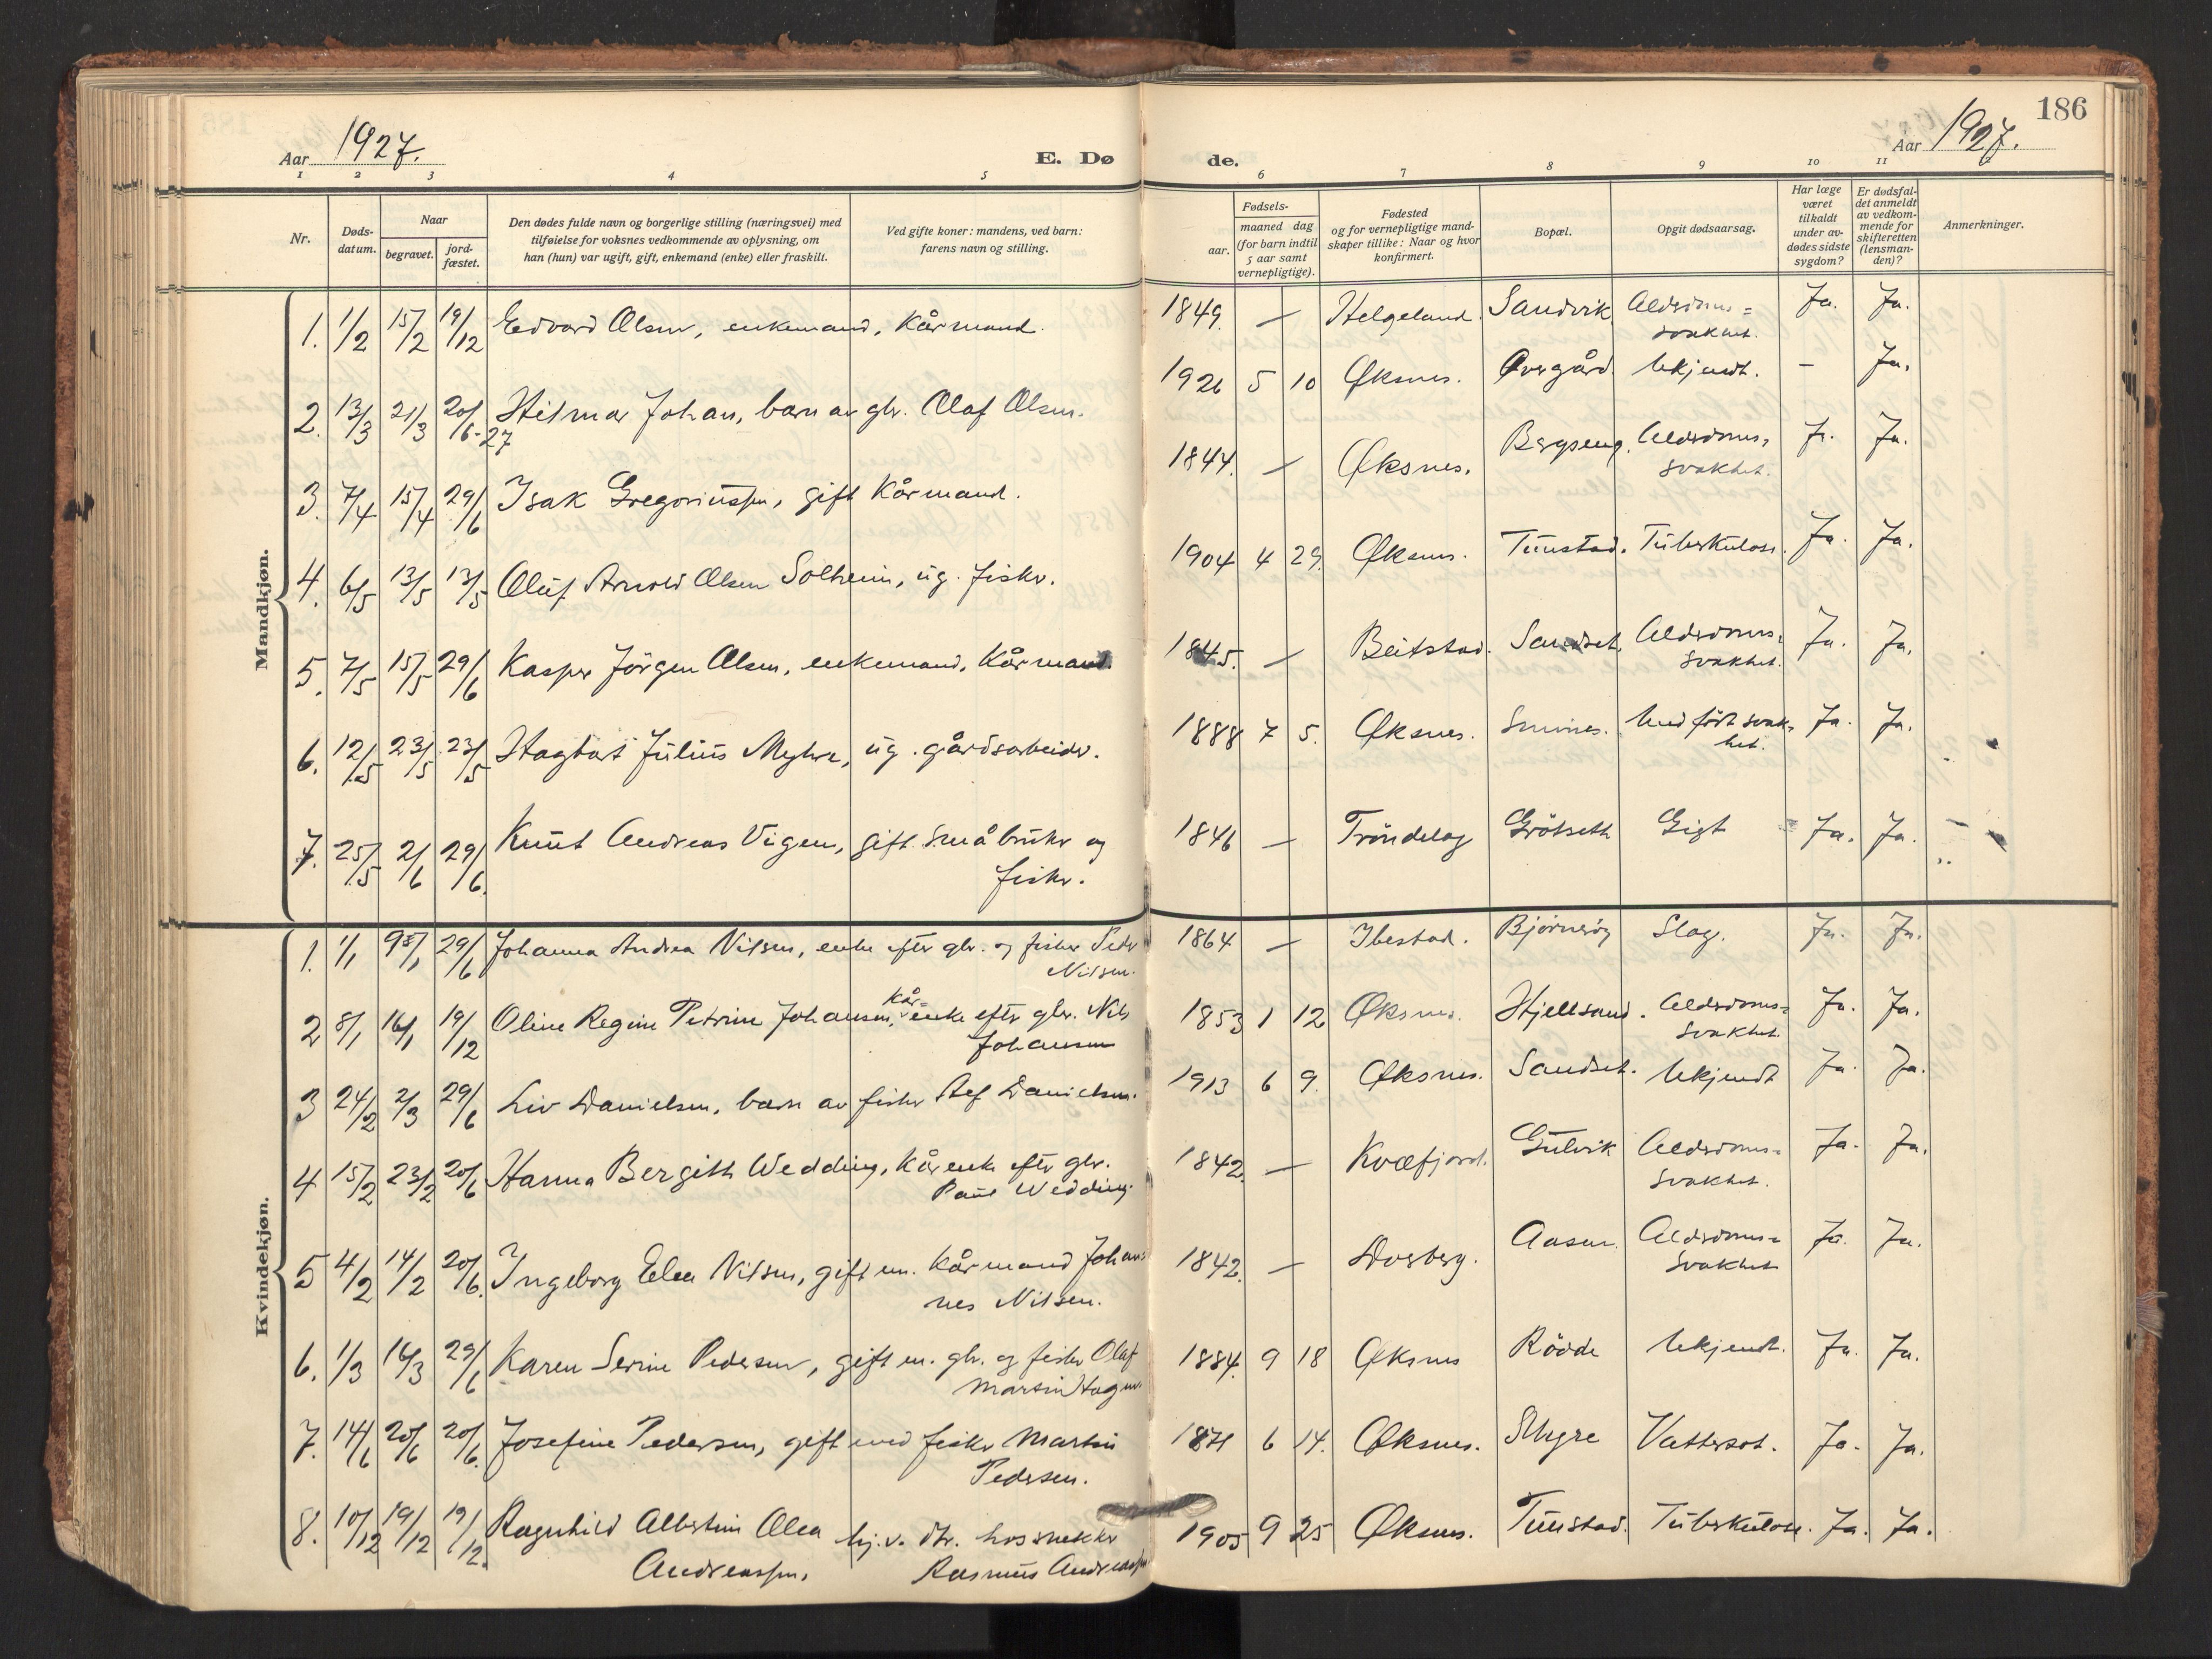 186
Aar 1927.
E. Døde.
Aar 1927.
1 2 3 4 5 6 7 8 9 10 11
Nr.
Døds-
datum.
Naar
begravet.
jord-
fæstet.
Den dødes fulde navn og borgerlige stilling (næringsvei) med
tilføielse for voksnes vedkommende av oplysning, om
han (hun) var ugift, gift, enkemand (enke) eller fraskilt.
Ved gifte koner: mandens, ved barn:
farens navn og stilling.
Fødsels-
aar.
maaned dag
(for barn indtil
5 aar samt
vernepligtige).
Fødested
og for vernepligtige mand-
skaper tillike: Naar og hvor
konfirmert.
Bopæl.
Opgit dødsaarsag.
Har læge
været
tilkaldt
under av-
dødes sidste
sygdom?
Er dødsfal-
det anmeldt
av vedkom-
mende for
skifteretten
(lensman-
den)?
Anmerkninger.
Mandkjøn.
1. 1/2 15/2 19/12 Edvard Olsen, enkemand, Kårmand. 1849. — Helgeland. Sandvik Alderdoms=
svakhet. Ja. Ja.
2. 13/3 21/3 20/6-27 Hilmar Johan, barn av gbr. Olaf Olsen. 1926 5 10 Øksnes. Øvergård. Ukjendt. – Ja.
3. 7/4 15/4 29/6 Isak Gregoriussen, gift Kårmand. 1844. — Øksnes. Bergseng. Alderdoms=
svakhet. Ja. Ja.
4. 6/5 13/5 13/5 Oluf Arnold Olsen Solheim, ug. fisker. 1904 4 29. Øksnes. Tunstad. Tuberkulose. Ja. Ja.
5. 7/5 15/5 29/6 Kasper Jörgen Olsen, enkemand, Kårmand. 1845. — Beitstad. Sandset. Alderdoms=
svakhet. Ja. Ja.
6. 12/5 23/5 23/5 Hagbart Julius Myhre, ug. gårdsarbeider. 1888 7 5. Øksnes. Smines. Medfört svak-
het. Ja. Ja.
7. 25/5 2/6 29/6. Knut Andreas Vigen, gift Småbruker og
fisker. 1846 — Tröndelag Grötseth Gigt Ja. Ja.
Kvindekjøn.
1. 1/1 9/1 29/6 Johanna Andrea Nilsen, enke efter gbr. og fisker Peder
Nilsen. 1864 — Ibestad. Bjørnrøy Slag. Ja. Ja.
2 8/1 16/1 19/12 Oline Regine Petrine Johansen, Kår=enke efter gbr. Nils
Johansen 1853 1 12 Øksnes. Hjellsand. Alderdoms=
svakhet. Ja. Ja.
3 24/2 2/3 29/6 Liv Danielsen, barn av fisker Alf Danielsen. 1913 6 9. Øksnes. Sandset. Ukjendt Ja. Ja.
4 15/2 23/2 20/6 Hanna Bergitte Wedding, Kårenke efter gbr.
Paul Wedding. 1842. — Kvæfjord. Gulvik Alderdoms=
svakhet. Ja. Ja.
5 4/2 14/2 20/6. Ingeborg Elea Nilsen, gift m. Kårmand Johan
nes Nilsen. 1842. — Dverberg. Aasen. Alderdoms=
svakhet Ja. Ja.
6. 1/3 16/3 29/6 Karen Serine Pedersen, gift m. gbr. og fisker Olaf
Martin Hagen. 1884. 9 18 Øksnes Rödde Ukjendt. Ja. Ja.
7. 14/6 20/6 20/6. Josefine Pedersen, gift med fisker Martin
Pedersen. 1871 6 14. Øksnes. Myre Vattersot. Ja. Ja.
8. 10/12 19/12 19/12. Ragnhild Albertine Olea
Andreassen, hj.v. dtr. hos snekker
Rasmus Andreassen 1905 9 25 Øksnes. Tunstad. Tuberkulose. Ja. Ja.